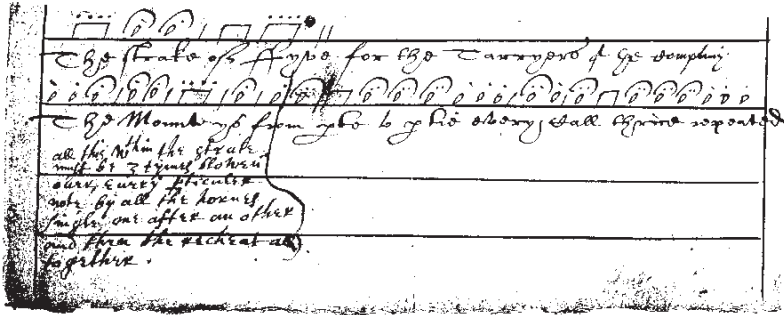 The strake of ffyve for the Tarryers of the Company
The from to every, & all thrice repeated
all this within the strake
must be 3 tymes blowen
over, every pticuler
note by all the hornes
single one after an other
and then the recheat all
together.